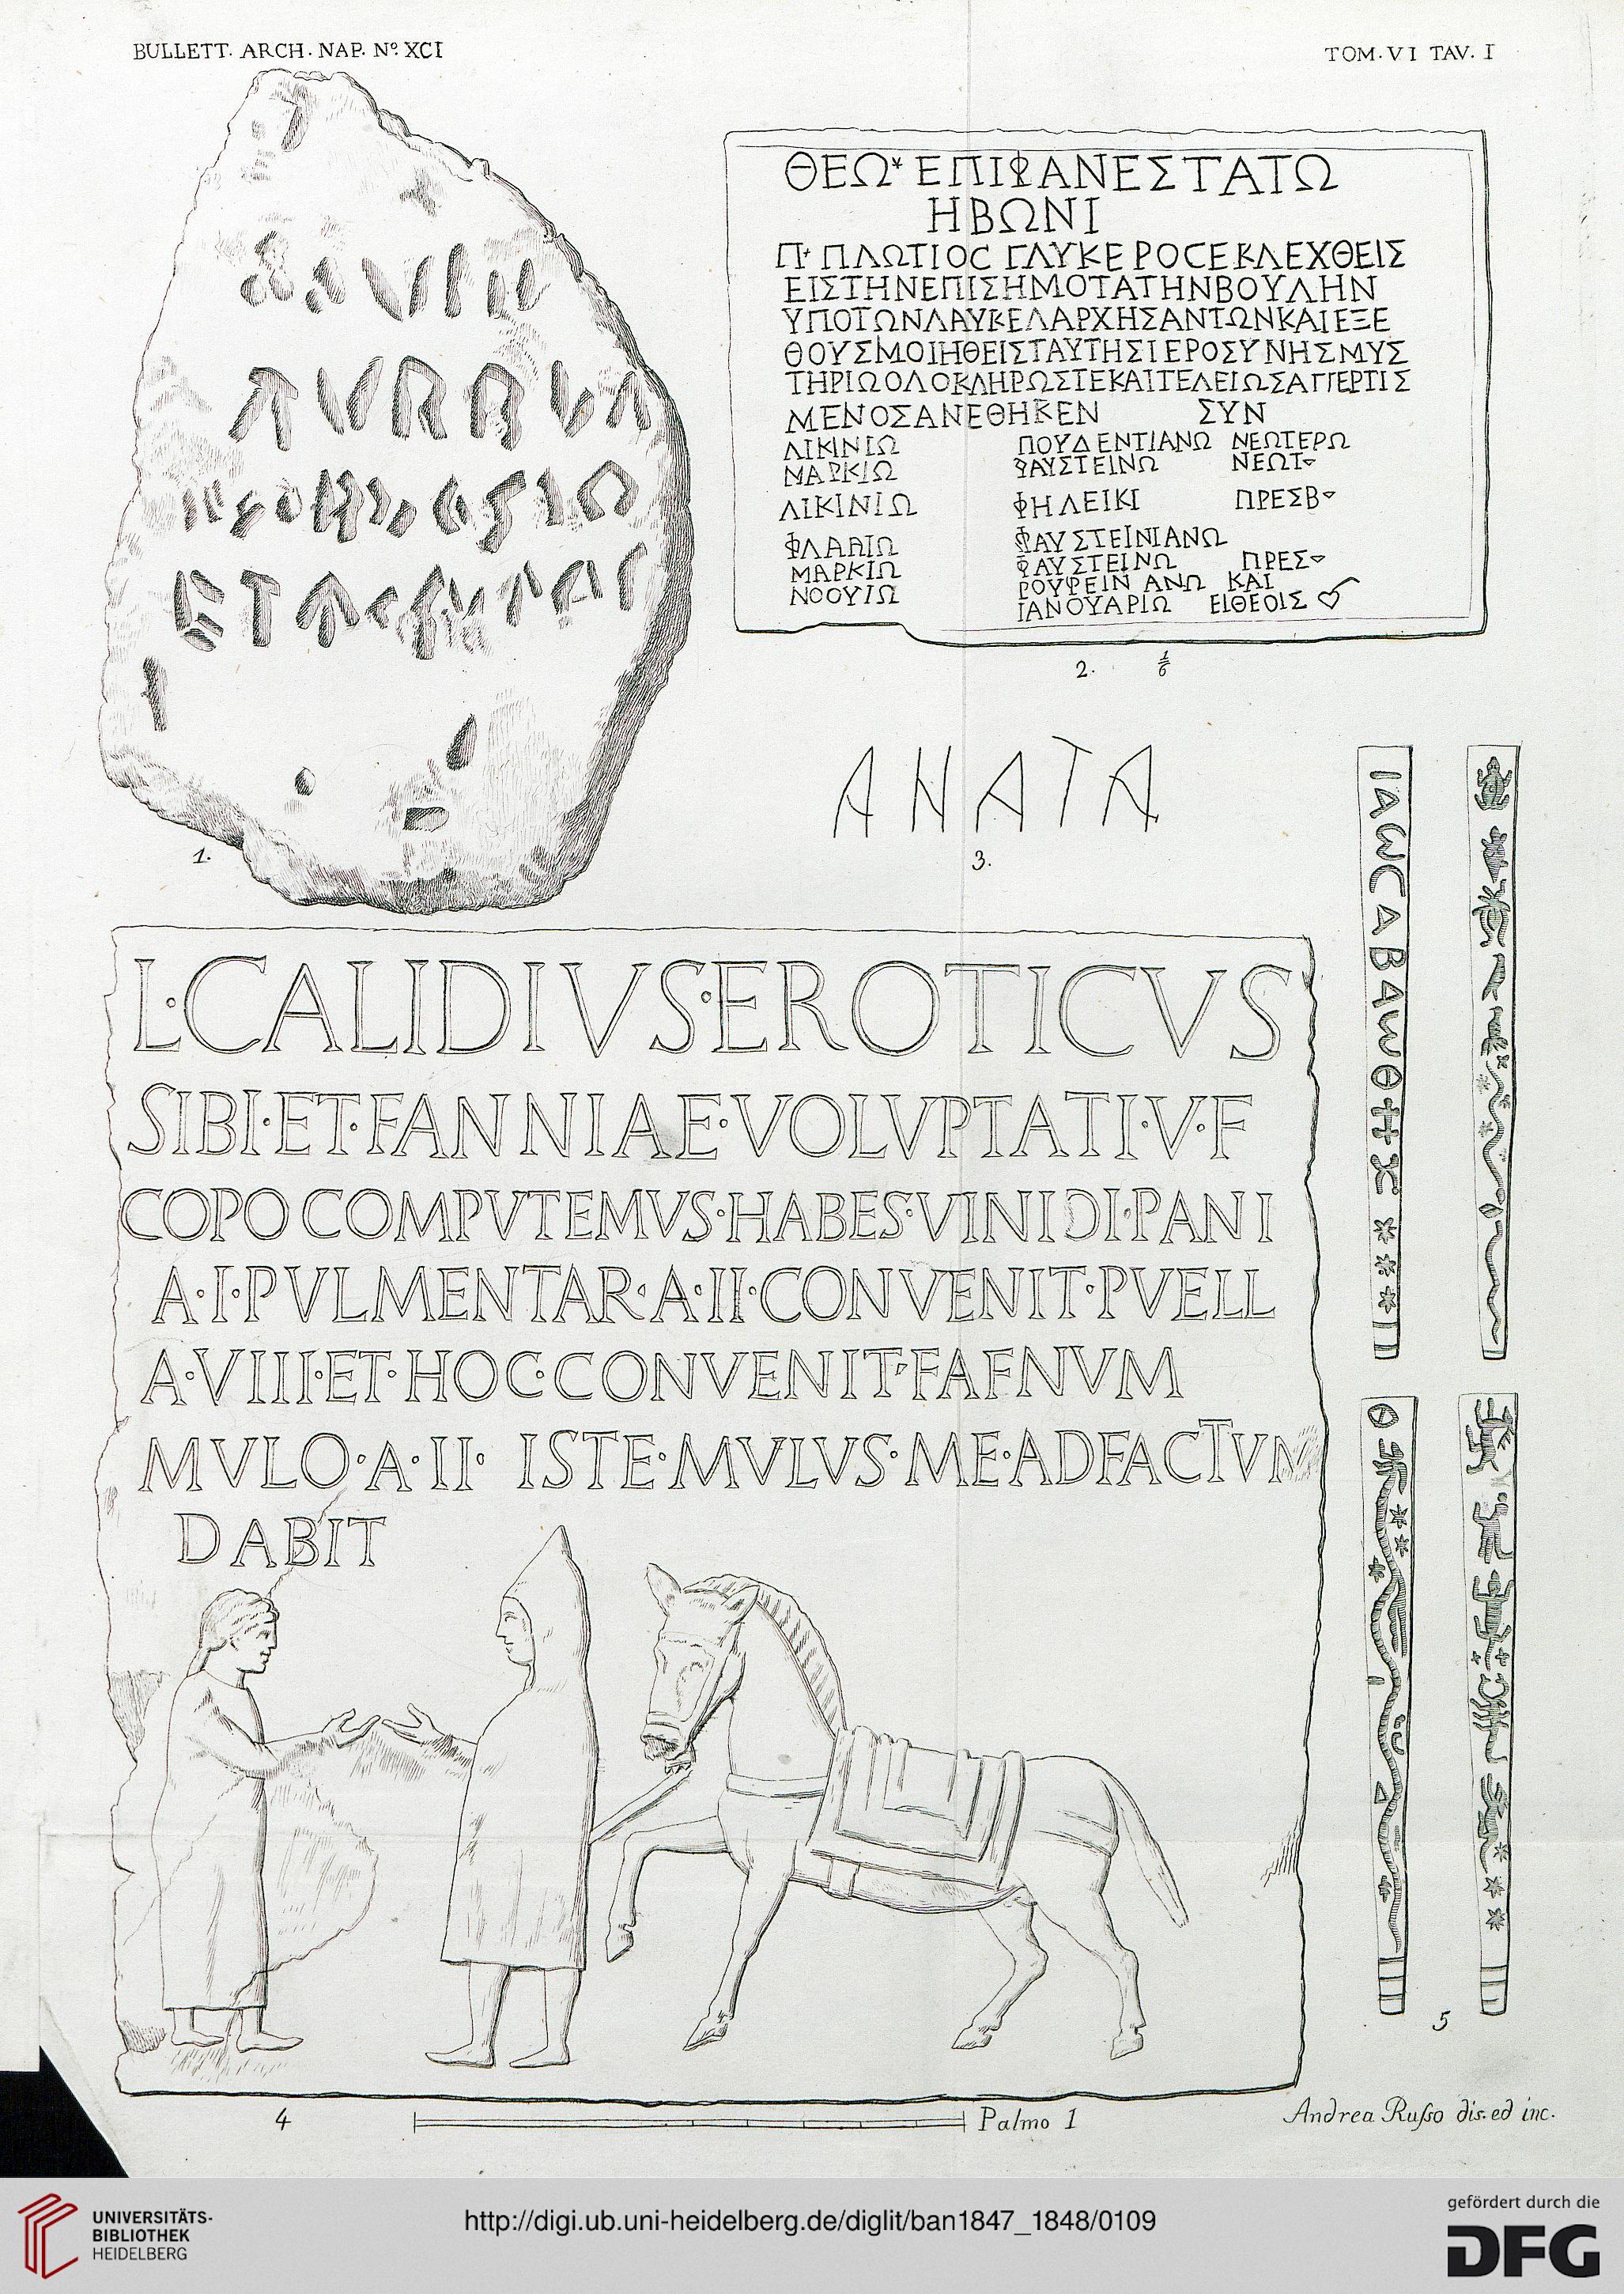 BULLETT. ARCH. NAP. Nº. XCI
TOM. VI TAV. I
1.
ΘΕΩ* ΕΠΙΦΑΝΕΣΤΑΤΩ
ΗΒΩΝΙ
Π ΠΛΩΤΙΟC ΓΛΥΚΕΡΟCΕΚΛΕΧΘΕΙΣ
ΕΙΣΤΗΝΕΠΙΣΗΜΟΤΑΤΗΝΒΟΥΛΗΝ
ΥΠΟΤΩΝΛΑΥΚΕΛΑΡΧΗΣΑΝΤΩΝΚΑΙΕΞΕ
ΘΟΥΣΜΟΙΗΘΕΙΣΤΑΥΤΗΣΙΕΡΟΣΥΝΗΣΜΥΣ
ΤΗΡΙΩΟΛΟΚΛΗΡΩΣΤΕΚΑΙΤΕΛΕΙΩΣΑΠΕΡΤΙΣ
ΜΕΝΟΣΑΝΕΘΗΚΕΝ ΣΥΝ
ΛΙΚΙΝΙΩ ΠΟΥΔΕΝΤΙΑΝΩ ΝΕΩΤΕΡΩ
ΜΑΡΚΙΩ ΦΑΥΣΤΕΙΝΩ ΝΕΩΤ
ΛΙΚΙΝΙΩ ΦΗΛΕΙΚΙ ΠΡΕΣΒ
ΦΑΥΣΤΕΙΝΙΑΝΩ
ΜΑΡΚΙΩ ΦΑΥΣΤΕΙΝΩ ΠΡΕΣ
ΝΟΟΥΙΩ ΡΟΥΦΕΙΝΙΑΝΩ ΚΑΙ
ΙΑΝΟΥΑΡΙΩ ΕΙΘΕΟΙΣ
2. 1/6
ΑΝΑΤΑ
3.
ΙΑωCΑΒΑωΘ
L·CALIDIVS·EROTICVS
SIBI·ET·FANNIAE·VOLVPTATI·V·F
COPO COMPVTEMVS·HABES·VINIↃI·PANI
A·I·PVLMENTAR·A·II·CONVENIT·PVELL
A·VIII·ET·HOC·CONVENIT·FAENVM
MVLO·A·II· ISTE·MVLVS·ME·ADFACTVM
DABIT
4
Palmo 1
5
Andrea Russo dis. ed inc.
UNIVERSITÄTS-
BIBLIOTHEK
HEIDELBERG
http://digi.ub.uni-heidelberg.de/diglit/ban1847_1848/0109
gefördert durch die
DFG